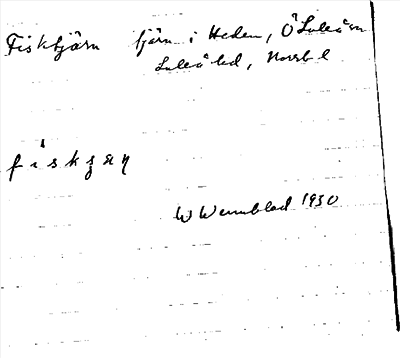 Fisktjärn tjärn i Heden, ÖLuleå sn
Luleå tad, Norrb l
f i s k ʒ æ ɳ
W Wennblad 1930